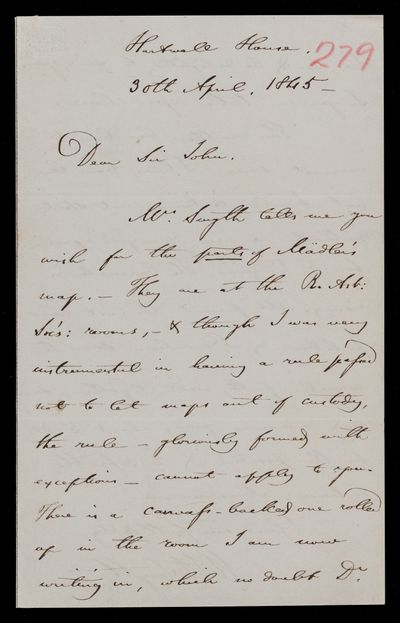 Hartwell House.
279
30th April, 1845 –
Dear Sir John.
Mrs. Smyth tells me you
wish for the parts of Mädler's
map. – They are at the R. Ast:
Soc's: rooms, – & though I was very
instrumental in having a rule passed
not to let maps out of custody,
the rule – gloriously formed with
exceptions – cannot apply to you.
There is a canvass-backed one rolled
up in the room I am now
writing in, which no doubt Dr.